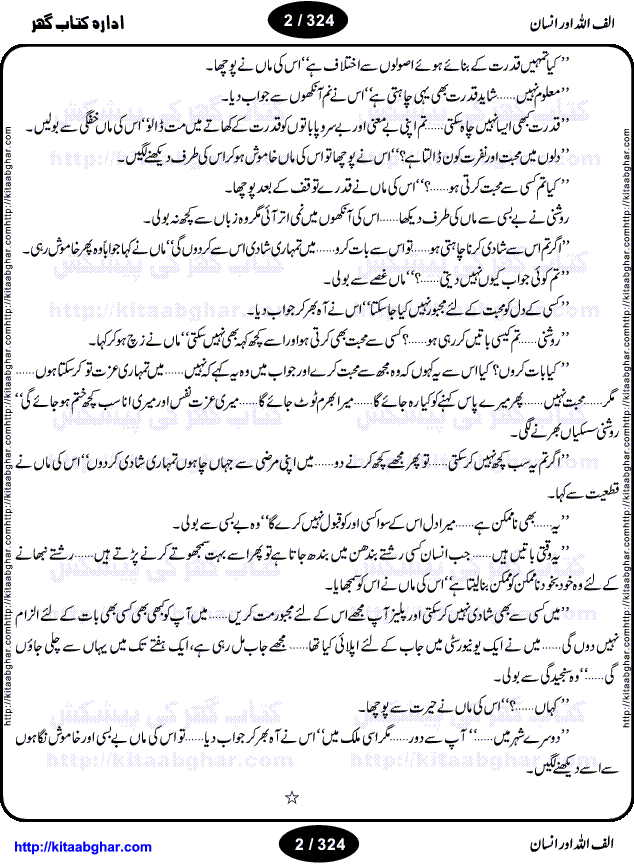 الف اللہ اور انسان
2 / 324
ادارہ کتاب گھر
’’کیا تمہیں قدرت کے بنائے ہوئے اصولوں سے اختلاف ہے‘‘ اس کی ماں نے پوچھا۔
’’معلوم نہیں......شاید قدرت بھی یہی چاہتی ہے‘‘ اس نے نم آنکھوں سے جواب دیا۔
’’قدرت کبھی ایسا نہیں چاہ سکتی......تم اپنی بے معنی اور بے سروپا باتوں کو قدرت کے کھاتے میں مت ڈالو‘‘ اس کی ماں خفگی سے بولیں۔
’’دلوں میں محبت اور نفرت کون ڈالتا ہے؟‘‘ اس نے پوچھا تو اس کی ماں خاموش ہو کر اس کی طرف دیکھنے لگیں۔
’’کیا تم کسی سے محبت کرتی ہو......؟‘‘ اس کی ماں نے قدرے توقف کے بعد پوچھا۔
روشنی نے بے بسی سے ماں کی طرف دیکھا......اس کی آنکھوں میں نمی اتر آئی مگر وہ زباں سے کچھ نہ بولی۔
’’اگر تم اس سے شادی کرنا چاہتی ہو......تو اس سے بات کرو......میں تمہاری شادی اس سے کر دوں گی‘‘ ماں نے کہا جواباً وہ پھر خاموش رہی۔
’’تم کوئی جواب کیوں نہیں دیتی......؟‘‘ ماں غصے سے بولی۔
’’کسی کے دل کو محبت کے لئے مجبور نہیں کیا جا سکتا‘‘ اس نے آہ بھر کر جواب دیا۔
’’روشنی......تم کیسی باتیں کر رہی ہو......؟ کسی سے محبت بھی کرتی ہو اور اسے کچھ کہہ بھی نہیں سکتی‘‘ ماں نے زچ ہو کر کہا۔
’’کیا بات کروں؟ کیا اس سے یہ کہوں کہ وہ مجھ سے محبت کرے اور جواب میں وہ یہ کہے کہ نہیں......میں تمہاری عزت تو کر سکتا ہوں......
مگر......محبت نہیں......پھر میرے پاس کہنے کو کیا رہ جائے گا......میرا بھرم ٹوٹ جائے گا......میری عزت نفس اور میری انا سب کچھ ختم ہو جائے گی‘‘
روشنی سسکیاں بھرنے لگی۔
’’اگر تم یہ سب کچھ نہیں کر سکتی......تو پھر مجھے کچھ کرنے دو......میں اپنی مرضی سے جہاں چاہوں تمہاری شادی کر دوں‘‘ اس کی ماں نے
قطعیت سے کہا۔
’’یہ......بھی ناممکن ہے......میرا دل اس کے سوا کسی اور کو قبول نہیں کرے گا‘‘ وہ بے بسی سے بولی۔
’’یہ وقتی باتیں ہیں......جب انسان کسی رشتے بندھن میں بندھ جاتا ہے تو پھر اسے بہت سمجھوتے کرنے پڑتے ہیں......رشتے نبھانے
کے لئے وہ خود بخود ناممکن کو ممکن بنا لیتا ہے‘‘ اس کی ماں نے اس کو سمجھایا۔
’’میں کسی سے بھی شادی نہیں کر سکتی اور پلیز آپ مجھے اس کے لئے مجبور مت کریں......میں آپ کو کبھی بھی کسی بھی بات کے لئے الزام
نہیں دوں گی......میں نے ایک یونیورسٹی میں جاب کے لئے اپلائی کیا تھا......مجھے جاب مل رہی ہے، ایک ہفتے تک میں یہاں سے چلی جاؤں
گی......‘‘ وہ سنجیدگی سے بولی۔
’’کہاں......؟‘‘ اس کی ماں نے حیرت سے پوچھا۔
’’دوسرے شہر میں......‘‘ آپ سے دور......مگر اسی ملک میں‘‘ اس نے آہ بھر کر جواب دیا......تو اس کی ماں بے بسی اور خاموش نگاہوں
سے اسے دیکھنے لگیں۔
☆
الف اللہ اور انسان
2 / 324
http://kitaabghar.com